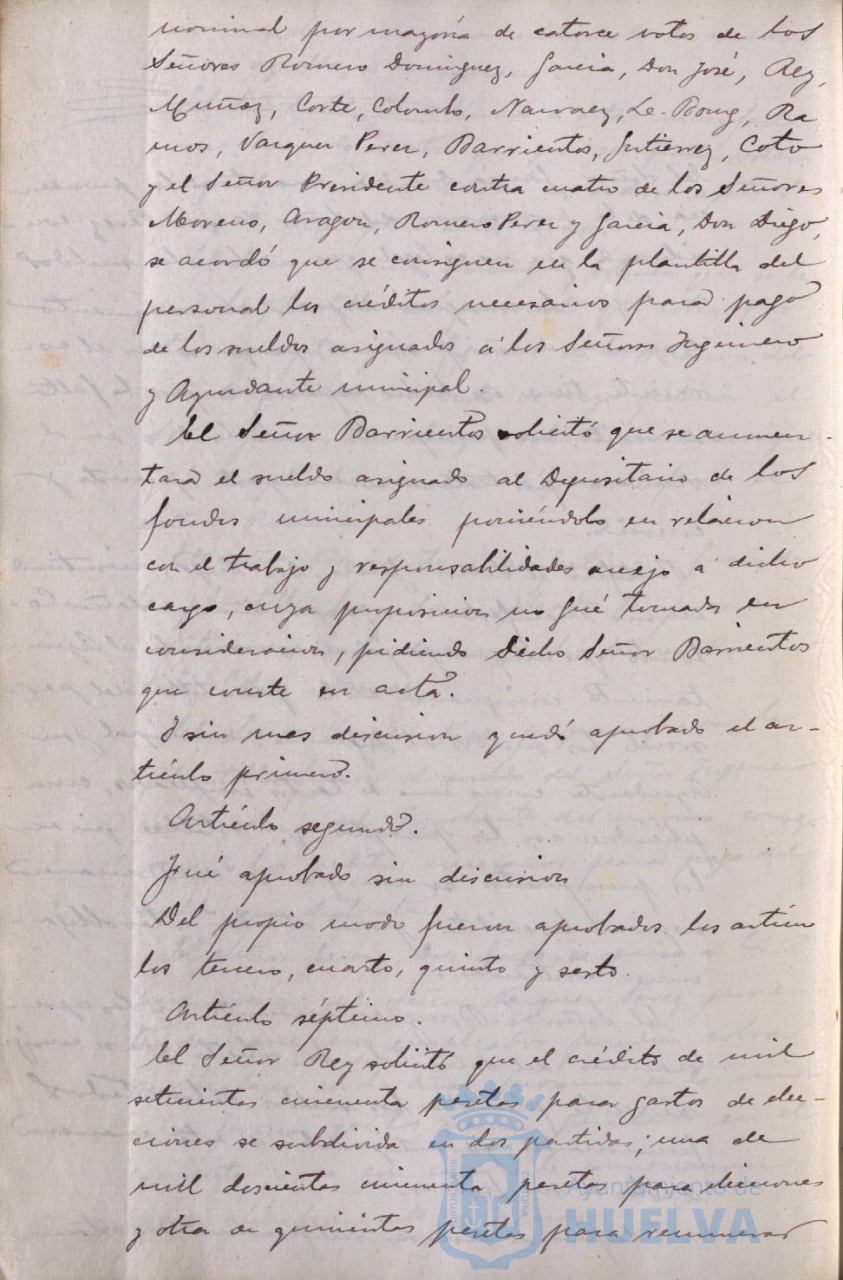 nominal por mayoría de catorce votos de los
Señores Romero Dominguez, Garcia, Don José, Rey,
Muñoz, Corte, Colombo, Narvaez, Le-Bourg, Ra
mos, Vazquez Perez, Barrientos, Gutierrez, Coto
y el Señor Presidente contra cuatro de los Señores
Moreno, Aragon, Romero Perez y Garcia, Don Diego,
se acordó que se consignen en la plantilla del
personal los créditos necesarios para pago
de los sueldos asignados á los Señores Ingeniero
y Ayudante municipal.
El Señor Barrientos solicitó que se aumen-
tara el sueldo asignado al Depositario de los
fondos municipales poniéndolo en relacion
con el trabajo y responsabilidades anejo á dicho
cargo, cuya proposicion no fué tomada en
consideracion, pidiendo dicho Señor Barrientos
que conste en acta.
Y sin mas discusion quedó aprobado el ar-
tículo primero.
Artículo segundo.
Fué aprobado sin discusion
Del propio modo fueron aprobados los artícu
los tercero, cuarto, quinto y sesto.
Artículo séptimo.
El Señor Rey solicitó que el crédito de mil
setecientas cincuenta pesetas para gastos de elec-
ciones se subdivida en dos partidas; una de
mil doscientas cincuenta pesetas para elecciones
y otra de quinientas pesetas para remunerar
Ayuntamiento de
HUELVA